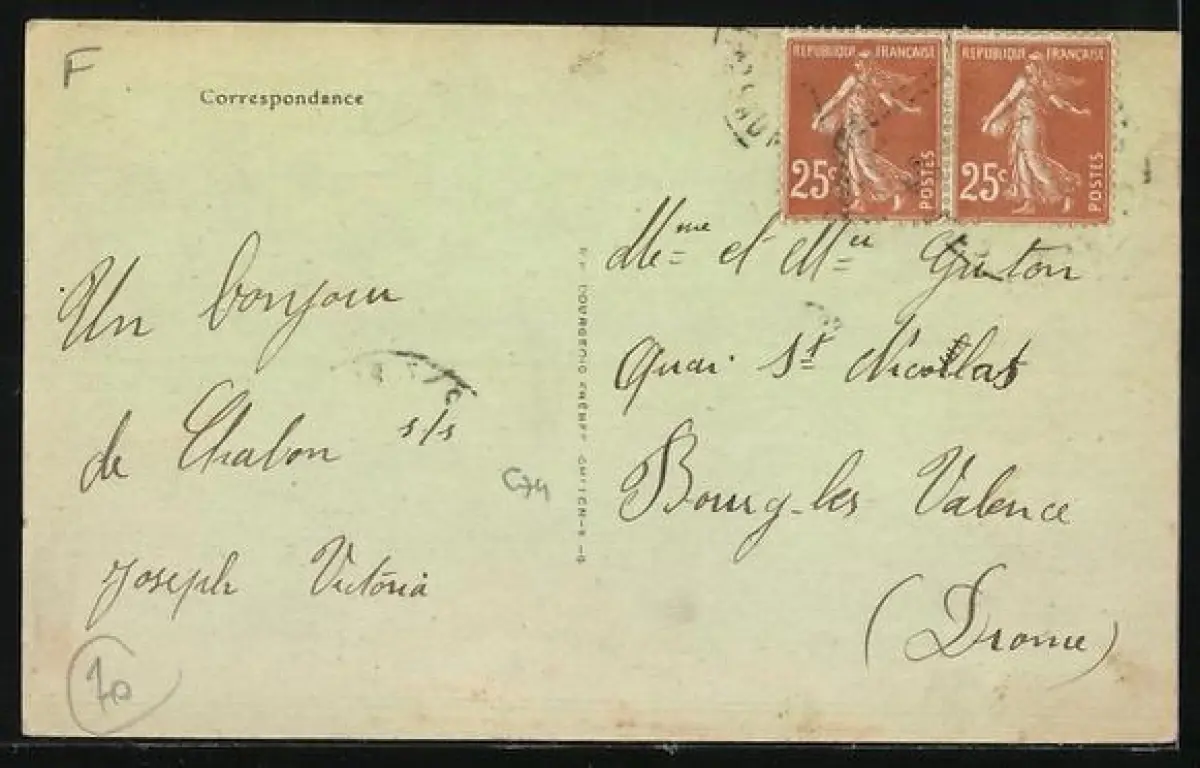 F
Correspondance
REPUBLIQUE FRANÇAISE
25c
POSTES
REPUBLIQUE FRANÇAISE
25c
POSTES
Un bonjour
de Chalon s/s
Joseph Victoria
Mme et Mr
Quai St Nicollas
Bourg-les Valence
(Drome)